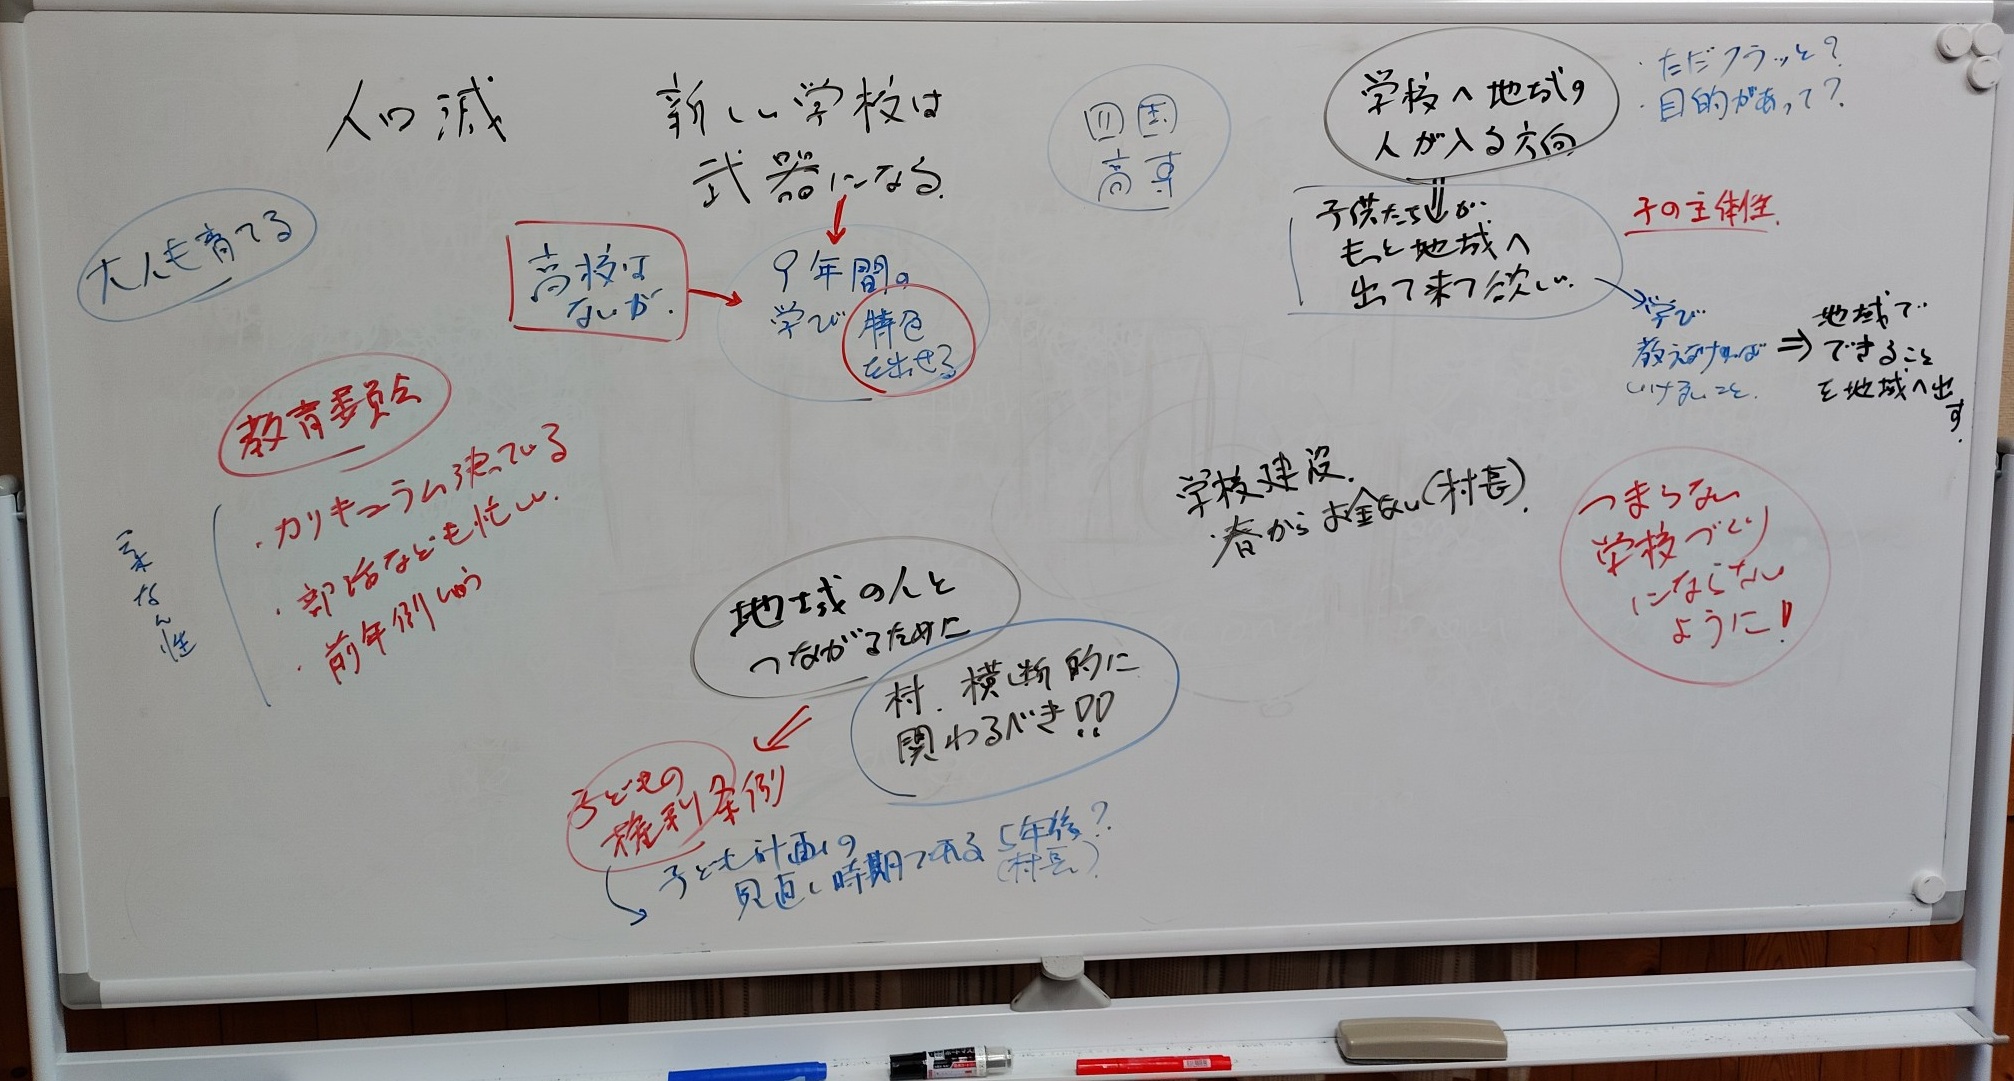 人口減
新しい学校は
武器になる
四国
高専
学校へ地域の
人が入る方向
・ただフラッと?
・目的があって?
大人も育てる
高校は
ないが.
9年間の
学び 特色
を出せる
子供たちが
もっと地域へ
出て来て欲しい.
子の主体性
学び
教えなければ
いけないこと.
⇒
地域で
できること
を地域へ出
す.
教育委員会
・カリキュラム決っている
・部活なども忙しい.
・前年例しゅう
柔なん性
学校建設.
・春からお金ない(村長).
つまらない
学校づくり
にならない
ように!
地域の人と
つながるために
村.横断的に
関わるべき!!
子どもの
権利条例
子ども計画の
見直し時期である 5年後?
(村長)